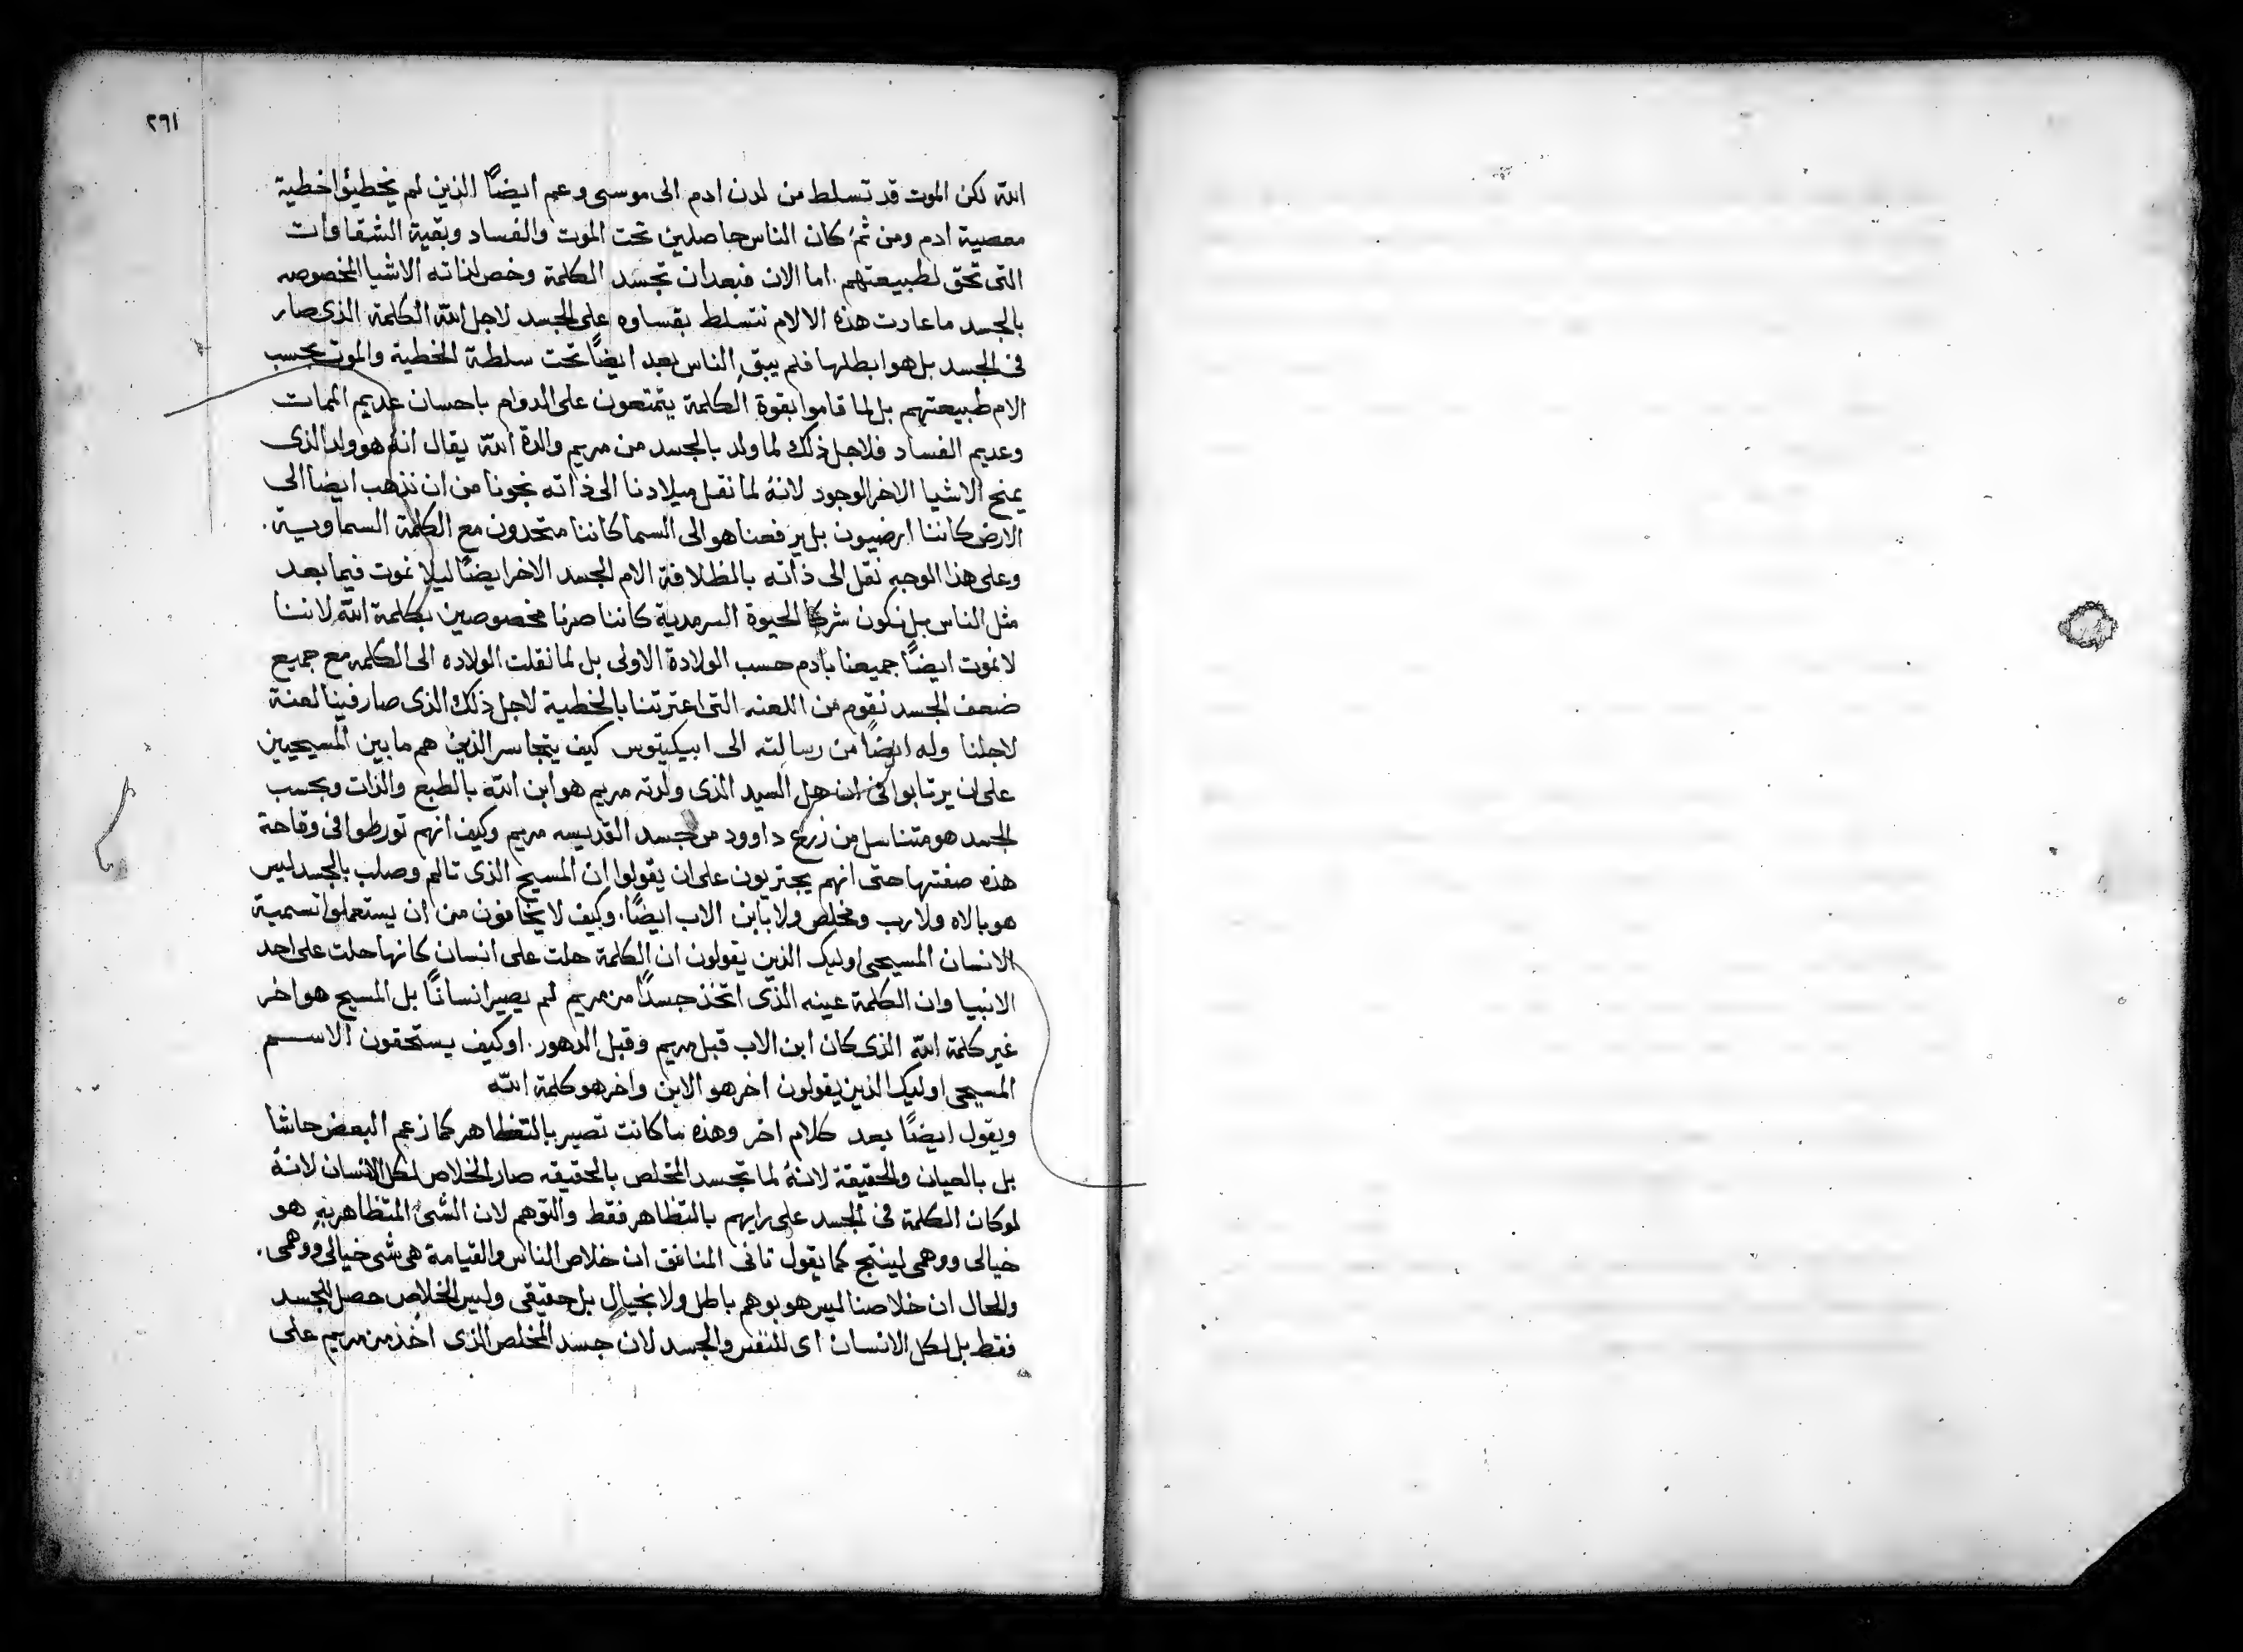 ٢٩١
الله لكن الموت قد تسلط من لدن ادم الى موسى وعم ايضًا الذين لم يخطيؤا خطية
معصية ادم ومن ثمُ كان الناس حاصلين تحت الموت والفساد وبقية الشقاوات
التى تحق لطبيعتهم. اما الان فبعد ان تجسد الكلمة وخص لذاته الاشيا المخصوصه
بالجسد ما عادت هذه الالام تتسلط بقساوه على الجسد لاجل الله الكلمة الذى صار
فى الجسد بل هو ابطلها فلم يبقِ الناس بعد ايضًا تحت سلطة الخطية والموت بحسب
الام طبيعتهم بل لما قاموا بقوة الكلمة يتمتعون على الدوام باحسان عديم الممات
وعديم الفساد فلاجل ذلك لما ولد بالجسد من مريم والدة الله يقال انه هو ولد الذى
يمنح الاشيا الاخر الوجود لانهُ لما نقل ميلادنا الى ذاته نجونا من ان نذهب ايضا الى
الارض كاننا ارضيون بل يرفعنا هو الى السما كاننا متحدون مع الكلمة السماوية.
وعلى هذا الوجهِ نقل الى ذاته بالمظلافة الام الجسد الاخر ايضًا ليلا نموت فيما بعد
مثل الناس بل نكون شركا الحيوة السرمدية كاننا صرنا مخصوصين بكلمة الله لاننا
لا نموت ايضًا جميعنا بادم حسب الولادة الاولى بل لما نقلت الولاده الى الكلمه مع جميع
ضعف الجسد نقوم من اللعنه التى اعترتنا بالخطية لاجل ذلك الذى صار فينا لعنة
لاجلنا وله ايضًا من رسالته الى ابيكيتوس كيف يتجاسر الذين هم ما بين المسيحيين
على ان يرتابوا فى ان هل السيد الذى ولدته مريم هو ابن الله بالطبع والذات وبحسب
الجسد هو متناسل من زرع داوود من جسد القديسه مريم وكيف انهم تورطوا فى وقاحة
هذه صفتها حتى انهم يجتريون على ان يقولوا ان المسيح الذى تالم وصلب بالجسد ليس
هو بالاه ولا رب ومخلص ولا بابن الاب ايضًا. وكيف لا يخافون من ان يستعملوا تسمية
الانسان المسيحى اوليك الذين يقولون ان الكلمة حلت على انسان كانها حلت على احد
الانبيا وان الكلمة عينه الذى اتخذ جسدًا من مريم لم يصير انسانًا بل المسيح هو اخر
غير كلمة الله الذى كان ابن الاب قبل مريم وقبل الدهور. او كيف يستحقون الاسم
المسيحى اوليك الذين يقولون اخر هو الابن واخر هو كلمة الله
ويقول ايضًا بعد كلام اخر وهذه ما كانت تصير بالتظاهر كما زعم البعض حاشا
بل بالعيان والحقيقة لانهُ لما تجسد المخلص بالحقيقه صار الخلاص لكل الانسان لانهُ
لو كان الكلمة فى الجسد على رايهم بالتظاهر فقط والتوهم لان الشى المتظاهر بهِ هو
خيالى ووهمى لينتج كما يقول تانى المنافق ان خلاص الناس والقيامة هى شى خيالى ووهمى.
والحال ان خلاصنا ليس هو بوهم باطل ولا بخيال بل حقيقى وليس الخلاص حصل للجسد
فقط بل لكل الانسان اى للنفس والجسد لان جسد المخلص الذى اخذ من مريم على